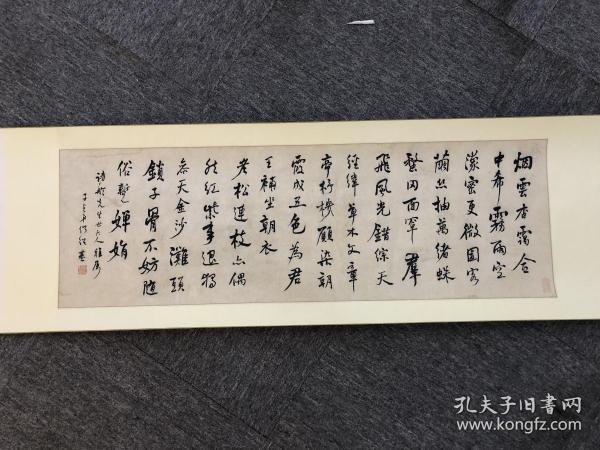 烟雲杳靄合
中希霧雨空
濛密更微園客
繭絲抽萬緒蛛
蝥网面罩羣
飛風光錯綜天
經緯草木文章
帝杼機願染朝
霞成五色為君
王補坐朝衣
老松連枝亦偶
然紅紫事退獨
參天金沙灘頭
鎖子骨不妨隨
俗暫嬋娟
先生大人雅屬
子貞何紹基
孔夫子旧书网
www.kongfz.com